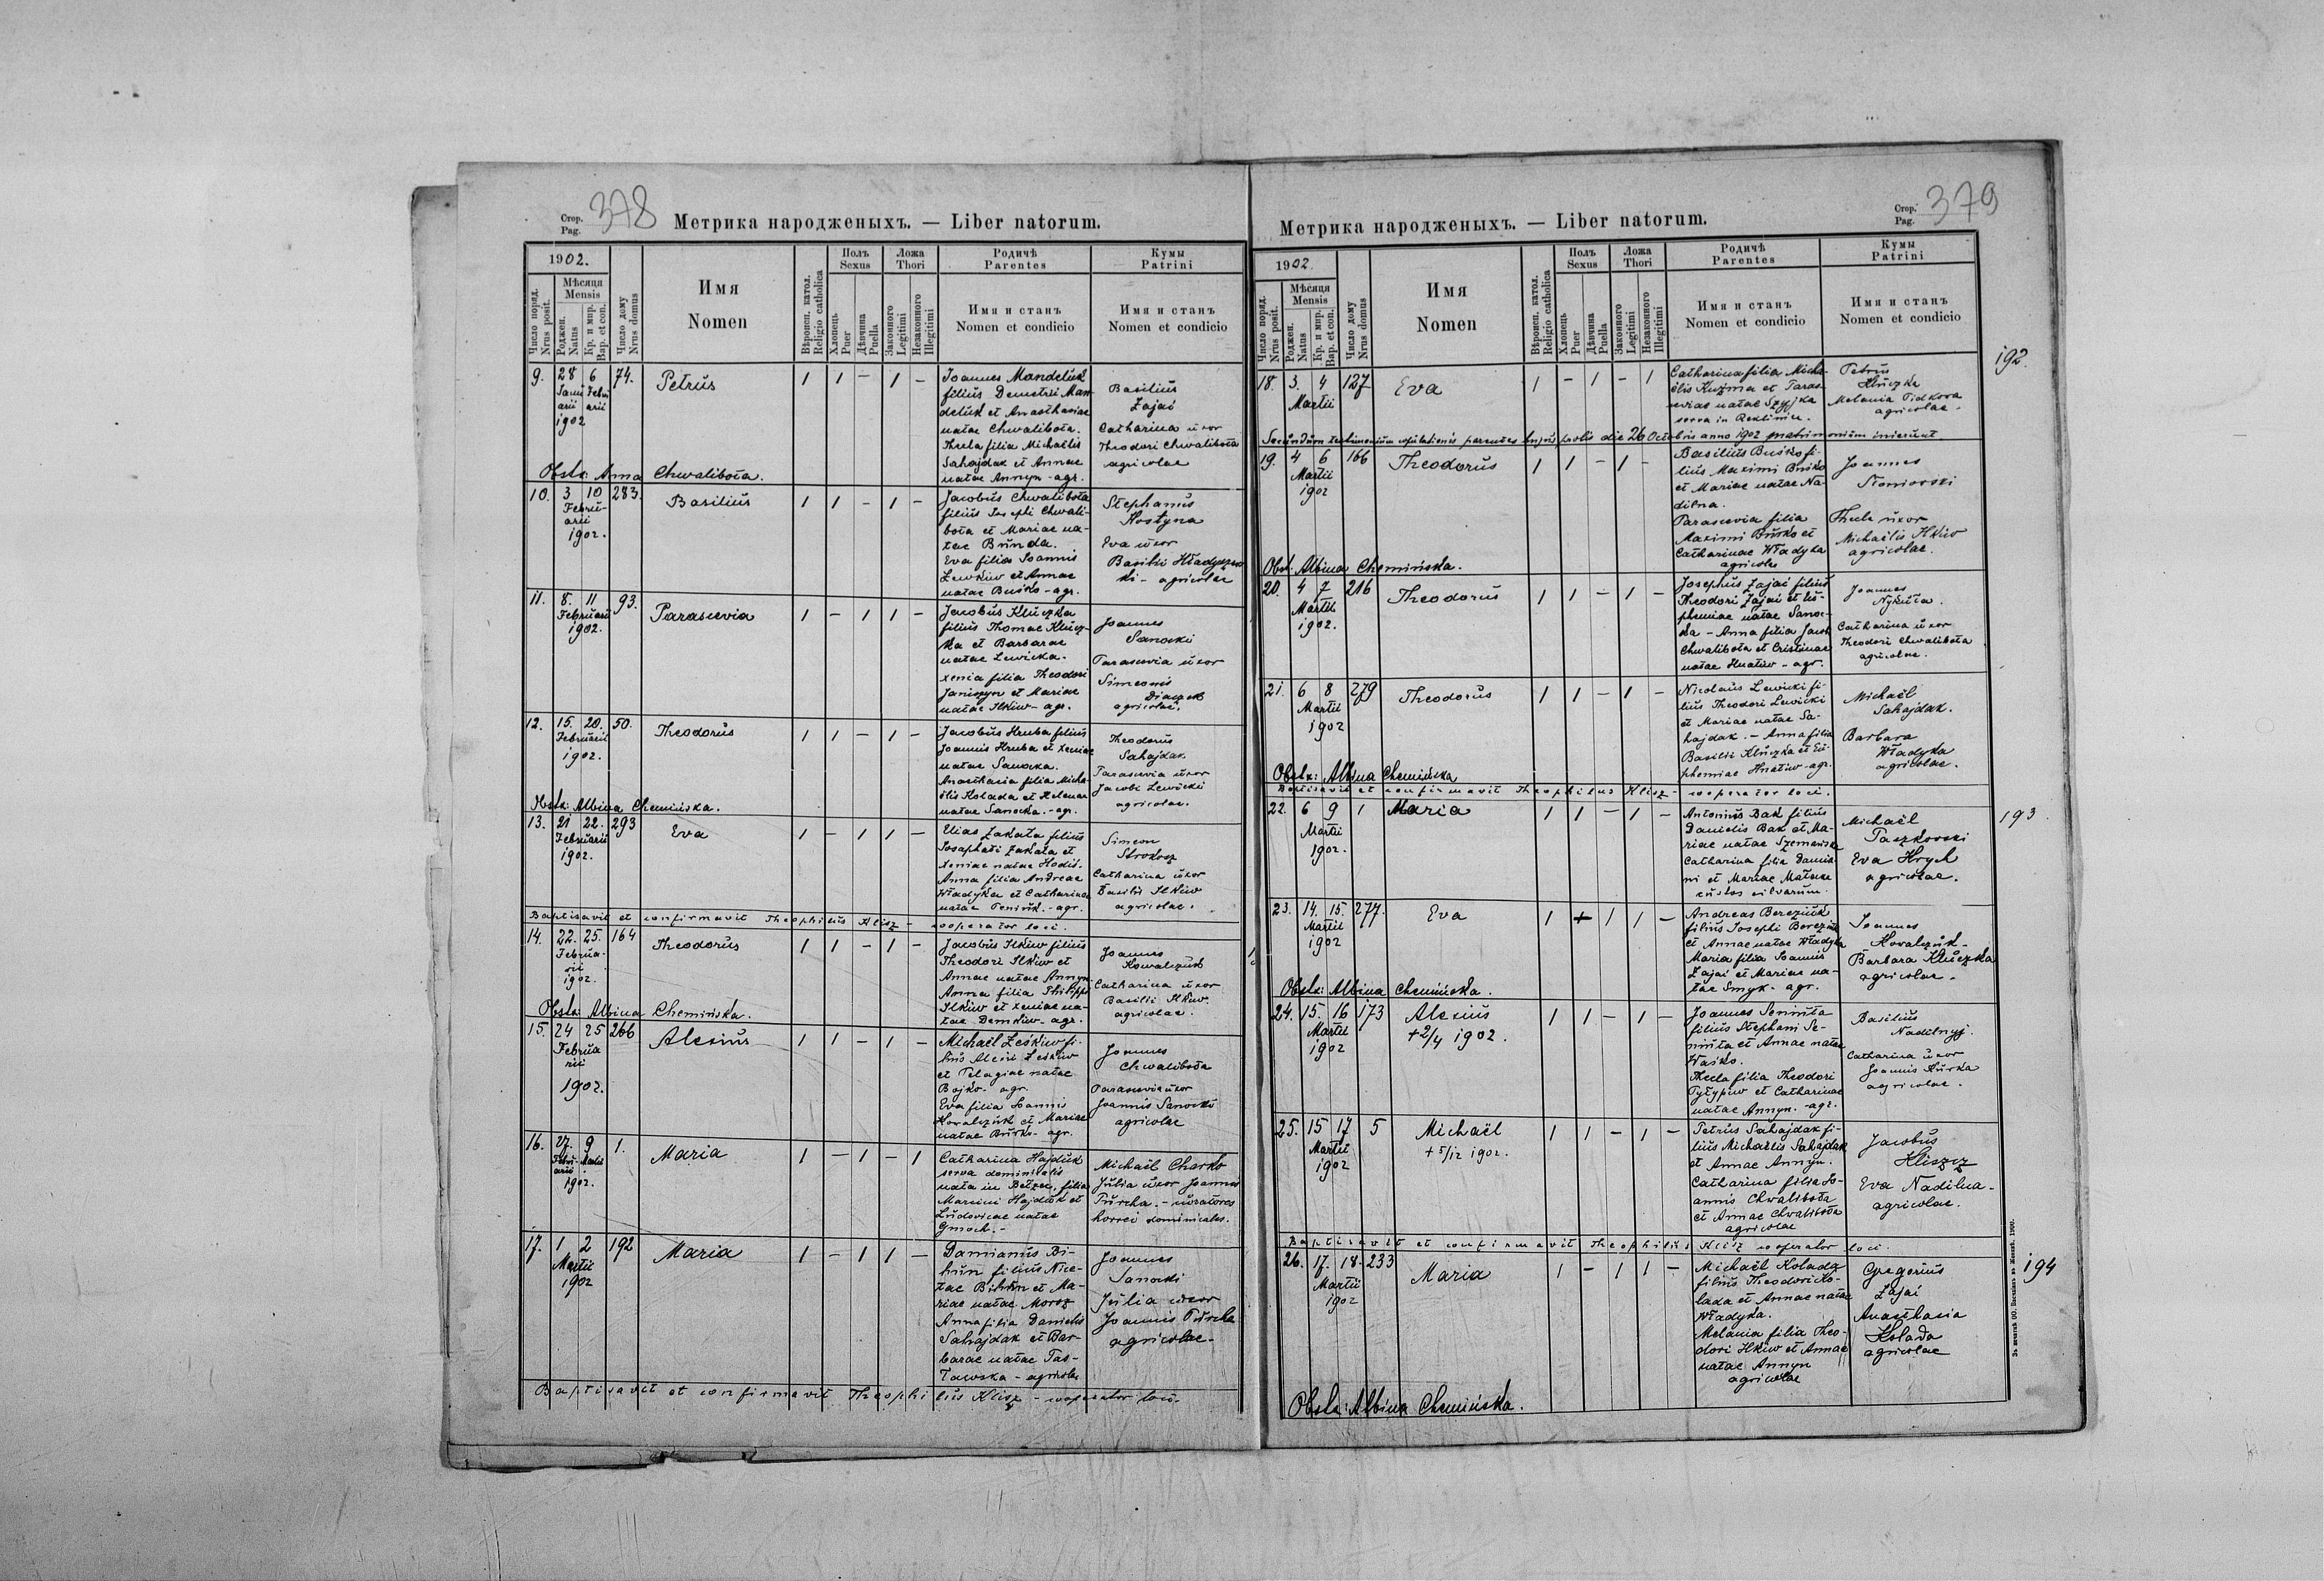 Стор.
Pag.
378
Метрика народженыхъ. — Liber natorum.
1902.
Число поряд.
Nrus posit.
Мѣсяця
Mensis
Роджен.
Natus
Кр. и мир.
Bap. et con.
Число дому
Nrus domus
Имя
Nomen
Вѣроисп. катол.
Religio catholica
Полъ
Sexus
Хлопець
Puer
Дѣвчина
Puella
Ложа
Thori
Законного
Legitimi
Незаконного
Illegitimi
Родичѣ
Parentes
Имя и станъ
Nomen et condicio
Кумы
Patrini
Имя и станъ
Nomen et condicio
9. 28 6 74. Petrus 1 1 – 1 –
1902
Joannes Mandeluk
filius Demetrii Man-
deluk et Anasthasiae
natae Chwalibota.
Thecla filia Michaëlis
Sahajdak et Annae
natae Annyn - agr.
Basilius
Zajać
Catharina uxor
Theodori Chwalibota
agricolae
Obstx: Anna Chwalibota.
10. 3 10 283. Basilius 1 1 – 1 –
Febru-
arii
1902.
Jacobus Chwalibota
filius Josephi Chwali-
bota et Mariae na-
tae Bunda.
Eva filia Joannis
Lewkiw et Annae
natae Buśko - agr.
Stephanus
Kostyna
Eva uxor
Basilii
ki - agricolae
11. 8. 11 93. Parascevia 1 – 1 1 –
Februarii
1902.
Jacobus Kluczka
filius Thomae Klucz-
ka et Barbarae
natae Lewicka.
Xenia filia Theodori
et Mariae
natae Ilkiw - agr.
Joannes
Sanocki
Parascevia uxor
Simeonis
agricolae.
12. 15. 20. 50. Theodorus 1 1 – 1 –
Februarii
1902.
Jacobus Hruba filius
Joannis Hruba et Xeniae
natae Sanocka.
Anasthasia filia Micha-
ëlis Kolada et Helenae
natae Sanocka. - agr.
Theodorus
Sahajdak
Parascevia uxor
Jacobi Lewicki
agricolae.
Obstx: Albina Chemińska.
13. 21 22. 293 Eva 1 – 1 1 –
Februarii
1902.
Elias Zakała filius
Josaphati Zakała et
Xeniae natae
Anna filia Andreae
Władyka et Catharinae
natae - agr.
Simeon
Catharina uxor
Basilii Ilkiw
agricolae.
Baptisavit et confirmavit Theophilus Klisz - cooperator loci.
14. 22. 25. 164 Theodorus 1 1 – 1 –
Februa-
rii
1902.
Jacobus Ilkiw filius
Theodori Ilkiw et
Annae natae Annyn
Anna filia Philippi
Ilkiw et Xeniae na-
tae Demkiw - agr.
Joannes
Kowalczuk
Catharina uxor
Basilii Ilkiw
agricolae.
Obstx: Albina Chemińska.
15. 24 25 266 Alexius 1 1 – 1 –
Februa
rii
1902.
Michaël Leśkiw fi-
lius Alexii Leśkiw
et Pelagiae natae
Bojko - agr.
Eva filia Joannis
Kowalczuk et Mariae
natae Buśko - agr.
Joannes
Chwalibota
Parascevia uxor
Joannis Sanocki
agricolae
16. 27. 9 1. Maria 1 – 1 – 1
1902.
Catharina Hajduk
serva dominicalis
nata in Bełzec, filia
Hajduk et
Ludovicae natae
Gmoch. -
Michaël Charko
Julia uxor Joannis
Turcha. - curatores
horrei dominicales.
17. 1 2 192 Maria 1 – 1 1 –
Martii
1902
Damianus Bi-
hun filius Nice-
tae Bihun et Ma-
riae natae Moroz
Anna filia Danielis
Sahajdak et Bar-
barae natae Pas-
ławska - agricolae
Joannes
Sanocki
Julia uxor
Joannis Turcha
agricolae -
Baptisavit et confirmavit Theophilus Klisz - cooperator loci.
Стор.
Pag.
379
Метрика народженыхъ. — Liber natorum.
1902.
Число поряд.
Nrus posit.
Мѣсяця
Mensis
Роджен.
Natus
Кр. и мир.
Bap. et con.
Число дому
Nrus domus
Имя
Nomen
Вѣроисп. катол.
Religio catholica
Полъ
Sexus
Хлопець
Puer
Дѣвчина
Puella
Ложа
Thori
Законного
Legitimi
Незаконного
Illegitimi
Родичѣ
Parentes
Имя и станъ
Nomen et condicio
Кумы
Patrini
Имя и станъ
Nomen et condicio
192.
18. 3. 4 127 Eva 1 – 1 – 1
Martii
Catharina filia Micha-
ëlis Kuźma et Paras-
ceviae natae Szyjka
serva in
Petrus
Kluczka
Melania Pidkowa
agricolae -
Secundum testimonium copulationis parentes hujus prolis die 26 Octobris anno 1902 matrimonium inierunt
19. 4 6 166 Theodorus 1 1 – 1 –
Martii
1902
Basilius Buśko fi-
lius Maximi Buśko
et Mariae natae Na-
dilna.
Parascevia filia
Maximi Buśko et
Catharinae Władyka
agricolae
Joannes
Thecla uxor
Michaëlis Ilkiw
agricolae.
Obst. Albina Chemińska.
20. 4 7 216 Theodorus 1 1 – 1 –
Martii
1902.
Josephus Zajać filius
Theodori Zajać et Eu-
phemiae natae Sanoc-
ka - Anna filia Jacobi
Chwalibota et Cristinae
natae Hnatiw - agr.
Joannes
Nykuta.
Catharina uxor
Theodori Chwalibota
agricolae.
21. 6 8 279 Theodorus 1 1 – 1 –
Martii
1902
Nicolaus Lewicki fi-
lius Theodori Lewicki
et Mariae natae Sa-
hajdak. - Anna filia
Basilii Kluczka et Eu-
phemiae Hnatiw - agr.
Michaël
Sahajdak.
Barbara
Władyka
agricolae.
Obstx: Albina Chemińska
Baptisavit et confirmavit Theophilus Klisz - cooperator loci.
22. 6 9 1 Maria 1 1 – 1 –
Martii
1902.
Antonius Bak filius
Danielis Bak et Ma-
riae natae
Catharina filia Damia-
ni et Mariae
custos silvarum.
Michaël
Paszkowski
Eva Hrych
agricolae.
193.
23. 14. 15. 277. Eva 1 + 1 1 –
Martii
1902
Andreas Bereziuk
filius Josephi Bereziuk
et Annae natae Władyka
Maria filia Joannis
Zajać et Mariae na-
tae Smyk - agr.
Joannes
Kowalczuk -
Barbara Kluczka
agricolae -
Obstx: Albina Chemińska.
24. 15. 16 173 Alexius 1 1 – 1 –
Martii
1902
+ 2/4 1902.
Joannes Seniuta
filius Stephani Se-
niuta et Annae natae
Waśko.
Thecla filia Theodori
Pyłypiw et Catharinae
natae Annyn. - agr.
Basilius
Nadilnyj.
Catharina uxor
Joannis Kurka
agricolae.
25. 15 17 5 Michaël 1 1 – 1 –
Martii
1902
+ 5/12 1902.
Petrus Sahajdak fi-
lius Michaëlis Sahajdak
et Annae Annyn.
Catharina filia Jo-
annis Chwalibota
et Annae Chwalibota
agricolae
Jacobus
Kliszcz
Eva Nadilna -
agricolae.
Baptisavit et confirmavit Theophilus Klisz cooperator loci.
26. 17. 18. 233 Maria 1 – 1 1 –
Martii
1902
Michaël Kolada
filius Theodori Ko-
lada et Annae natae
Władyka.
Melania filia Theo-
dori Ilkiw et Annae
natae Annyn
agricolae
Gregorius
Zajać
Anasthasia
Kolada
agricolae
194
Obstx: Albina Chemińska.